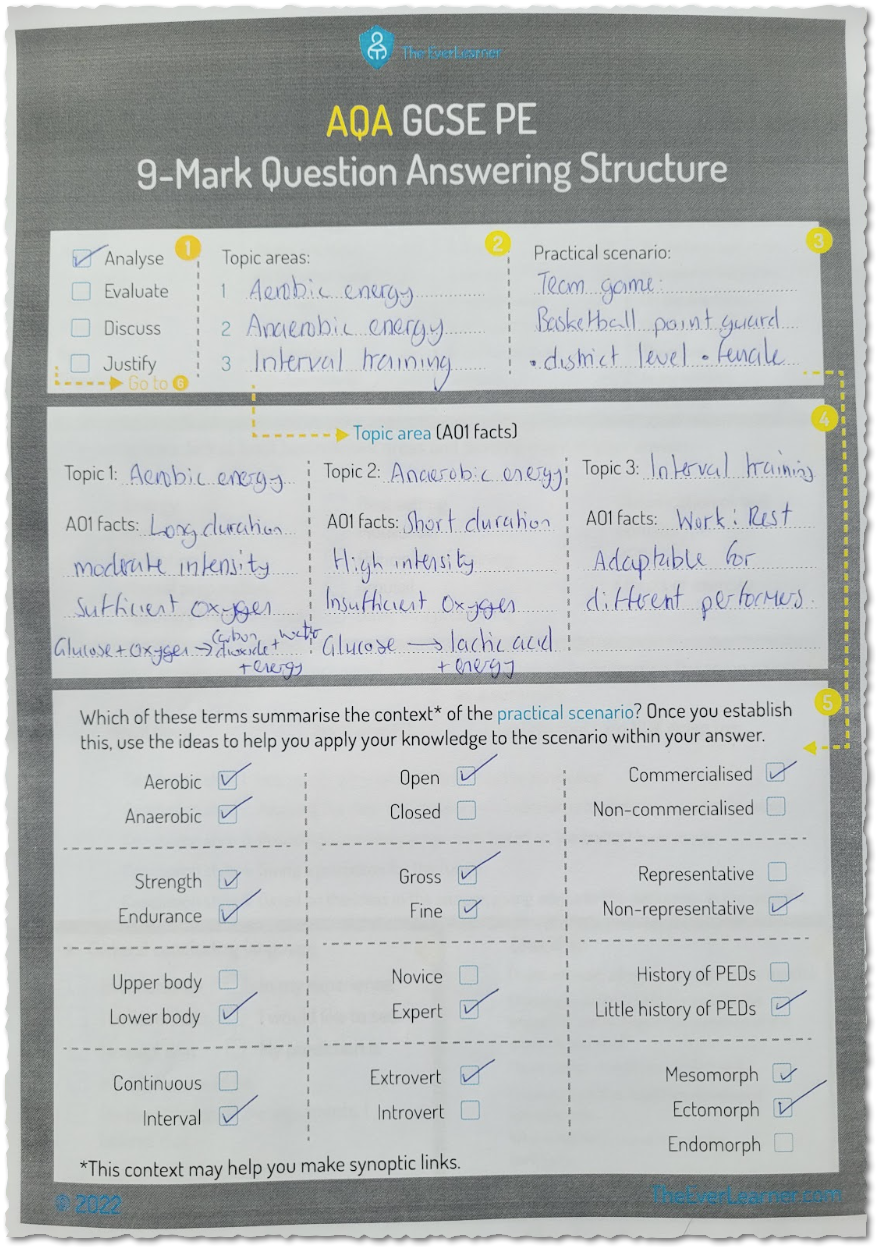 TheEverLearner
AQA GCSE PE
9-Mark Question Answering Structure
Analyse
Evaluate
Discuss
Justify
Go to 6
1
Topic areas:
1 Aerobic energy
2 Anaerobic energy
3 Interval training
2
Practical scenario:
Team game:
Basketball point guard
• district level • female
3
Topic area (AO1 facts)
4
Topic 1: Aerobic energy
AO1 facts: Long duration
moderate intensity
Sufficient oxygen
Glucose + Oxygen → carbon dioxide + water
+ energy
Topic 2: Anaerobic energy
AO1 facts: Short duration
High intensity
Insufficient Oxygen
Glucose → lactic acid
+ energy
Topic 3: Interval training
AO1 facts: Work : Rest
Adaptable for
different performers.
5
Which of these terms summarise the context* of the practical scenario? Once you establish
this, use the ideas to help you apply your knowledge to the scenario within your answer.
Aerobic
Anaerobic
Strength
Endurance
Upper body
Lower body
Continuous
Interval
Open
Closed
Gross
Fine
Novice
Expert
Extrovert
Introvert
Commercialised
Non-commercialised
Representative
Non-representative
History of PEDs
Little history of PEDs
Mesomorph
Ectomorph
Endomorph
*This context may help you make synoptic links.
© 2022
TheEverLearner.com